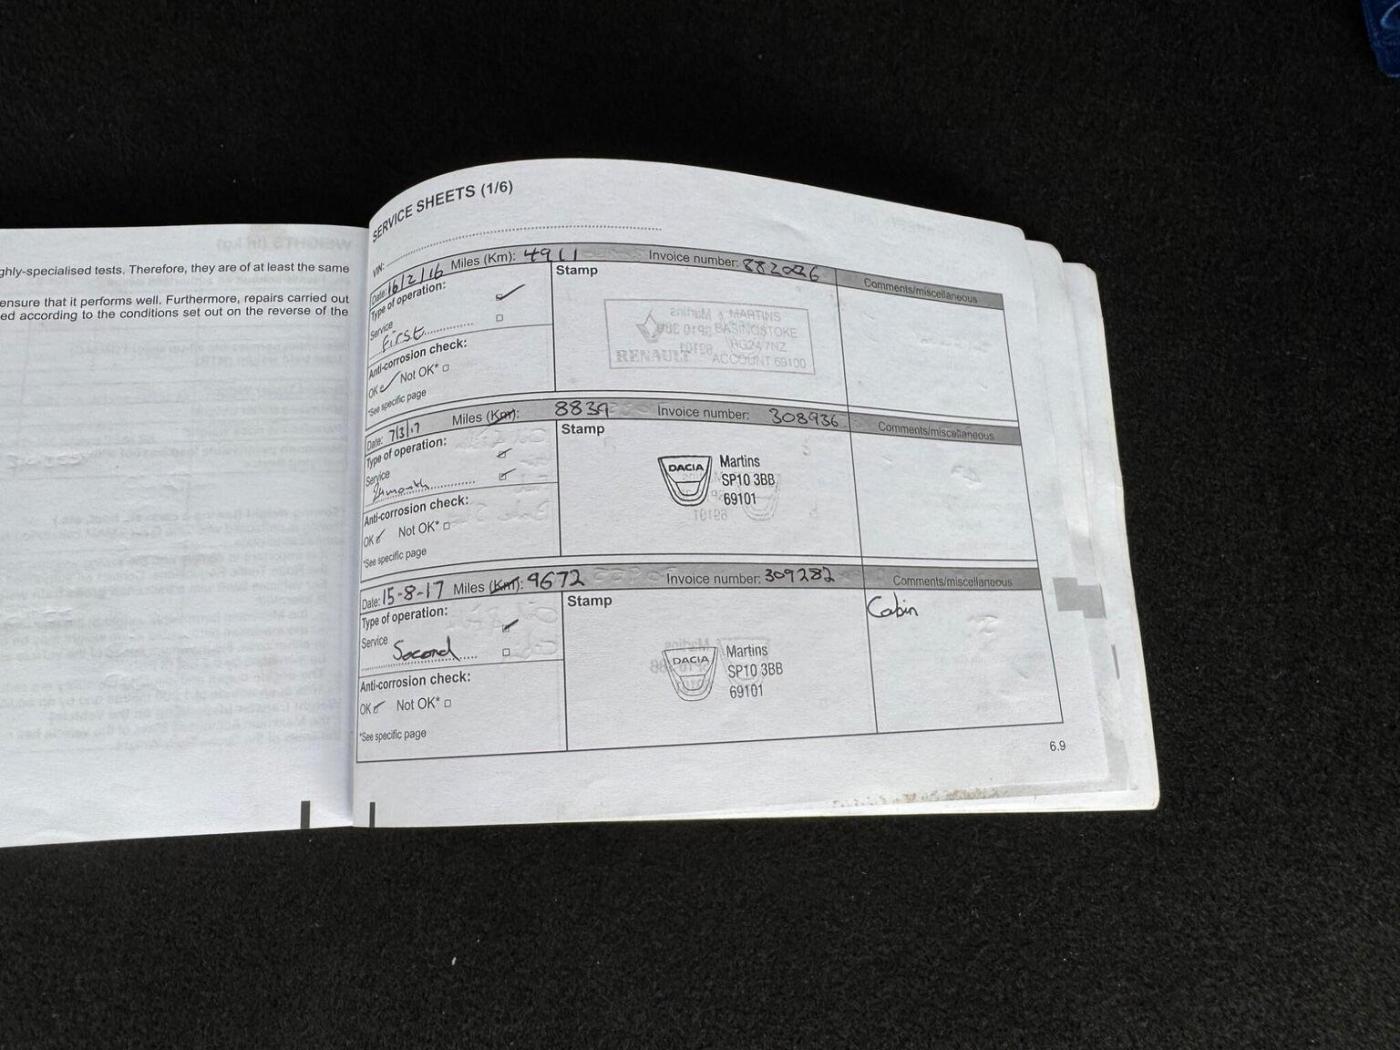 ghly-specialised tests. Therefore, they are of at least the same
ensure that it performs well. Furthermore, repairs carried out
ed according to the conditions set out on the reverse of the
SERVICE SHEETS (1/6)
VIN:
Date: 16/2/16 Miles (Km): 4911 Invoice number: 882026 Comments/miscellaneous
Type of operation:
Stamp
Service
First
Anti-corrosion check:
OK Not OK*
*See specific page
MARTINS
BASINGSTOKE
RG24 7NZ
RENAULT ACCOUNT 69100
Date: 7/3/17 Miles (Km): 8839 Invoice number: 308936 Comments/miscellaneous
Type of operation:
Stamp
Service
24month
Anti-corrosion check:
OK Not OK*
*See specific page
DACIA Martins
SP10 3BB
69101
Date: 15-8-17 Miles (Km): 9672 Invoice number: 309282 Comments/miscellaneous
Type of operation:
Stamp
Cabin
Service
Second
Anti-corrosion check:
OK Not OK*
*See specific page
DACIA Martins
SP10 3BB
69101
6.9